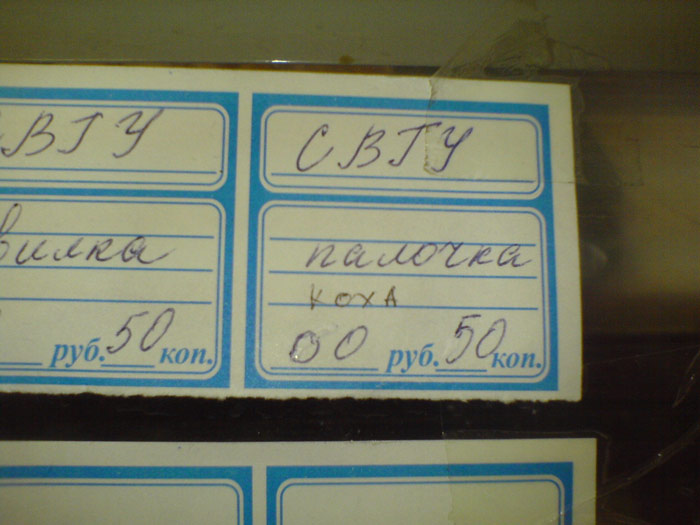 СВГУ
вилка
руб. 50 коп.
СВГУ
палочка
КОХА
00 руб. 50 коп.